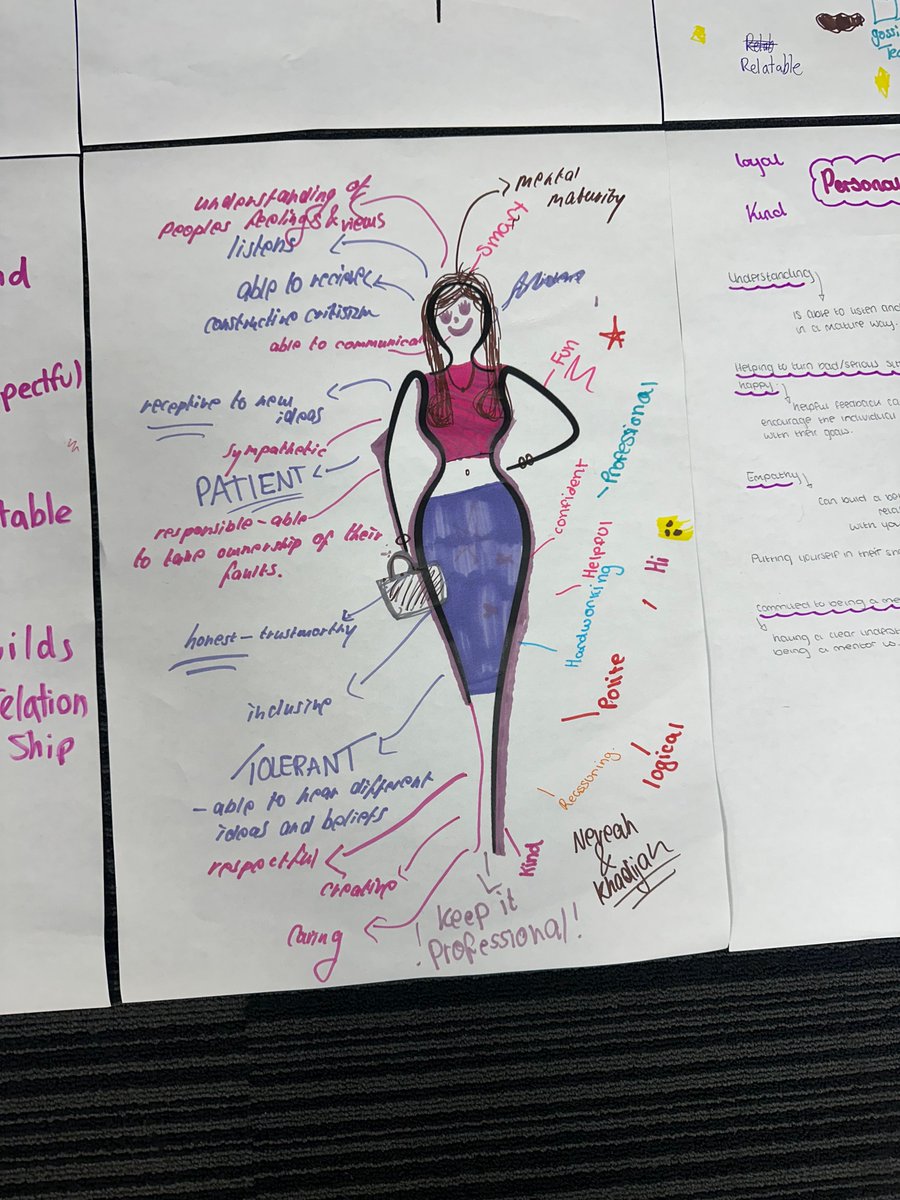 Relatable
gossi
Tea
nd
pectful
table
uilds
relation
Ship
understanding of
peoples feelings & views
listens
able to reciev
constructive critism
able to communicat
receptive to new
ideas
sympathetic
PATIENT
responsible - able
to take ownership of their
faults.
honest - trustworthy
inclusive
TOLERANT
- able to hear different
ideas and beliefs
respectful
creative
caring
mental
maturity
smart
Fun
Professional
confident
Helpful
Hardworking
Hi
Polite
logical
Reasoning.
Kind
! keep it
professional!
Neveah
&
Khadijah
loyal
Kind
Personal
Understanding
is able to listen and
in a mature way.
Helping to turn bad/serious si
happy.
helpful feedback ca
encourage the individual
with their goals.
Empathy
Can build a b
rela
with yo
Putting yourself in their sh
Commited to being a me
having a clear underst
being a mentor is